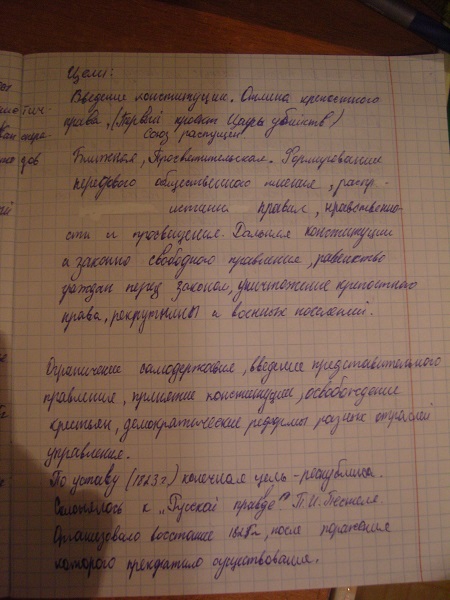 Цели:
Введение конституции. Отмена крепостного
права. (Первый проект Цареубийств)
Союз распущен
Ближняя, Просветительская. Формирование
передового общественного мнения, распр-
истани правил, нравственно-
сти и просвещения. Дальняя конституции
а законно свободного правление, равенство
граждан перед законом, уничтожение крепостного
права, рекрутчины и военных поселений.
Ограничение самодержавия, введение представительного
правления, принятие конституции, освобождение
крестьян, демократические реформы разных отраслей
управления.
По уставу (1823г) конечная цель - республика.
Склонялось к "Русской правде" П.И. Пестеля.
Организовало восстание 1825г, после поражения
которого прекратило существования.
тич-
дов